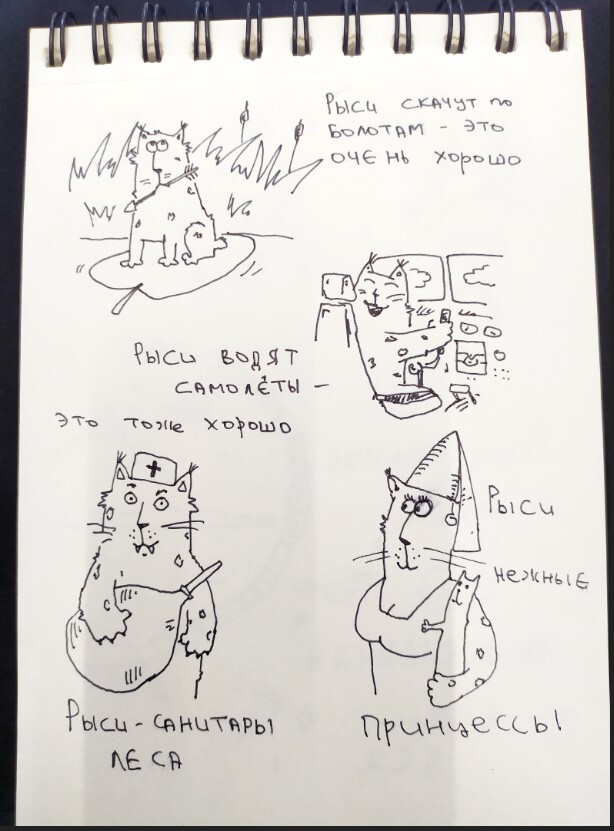 Рыси скачут по
болотам - это
очень хорошо
Рыси водят
самолёты -
это тоже хорошо
Рыси
нежные
принцессы
Рыси-санитары
леса